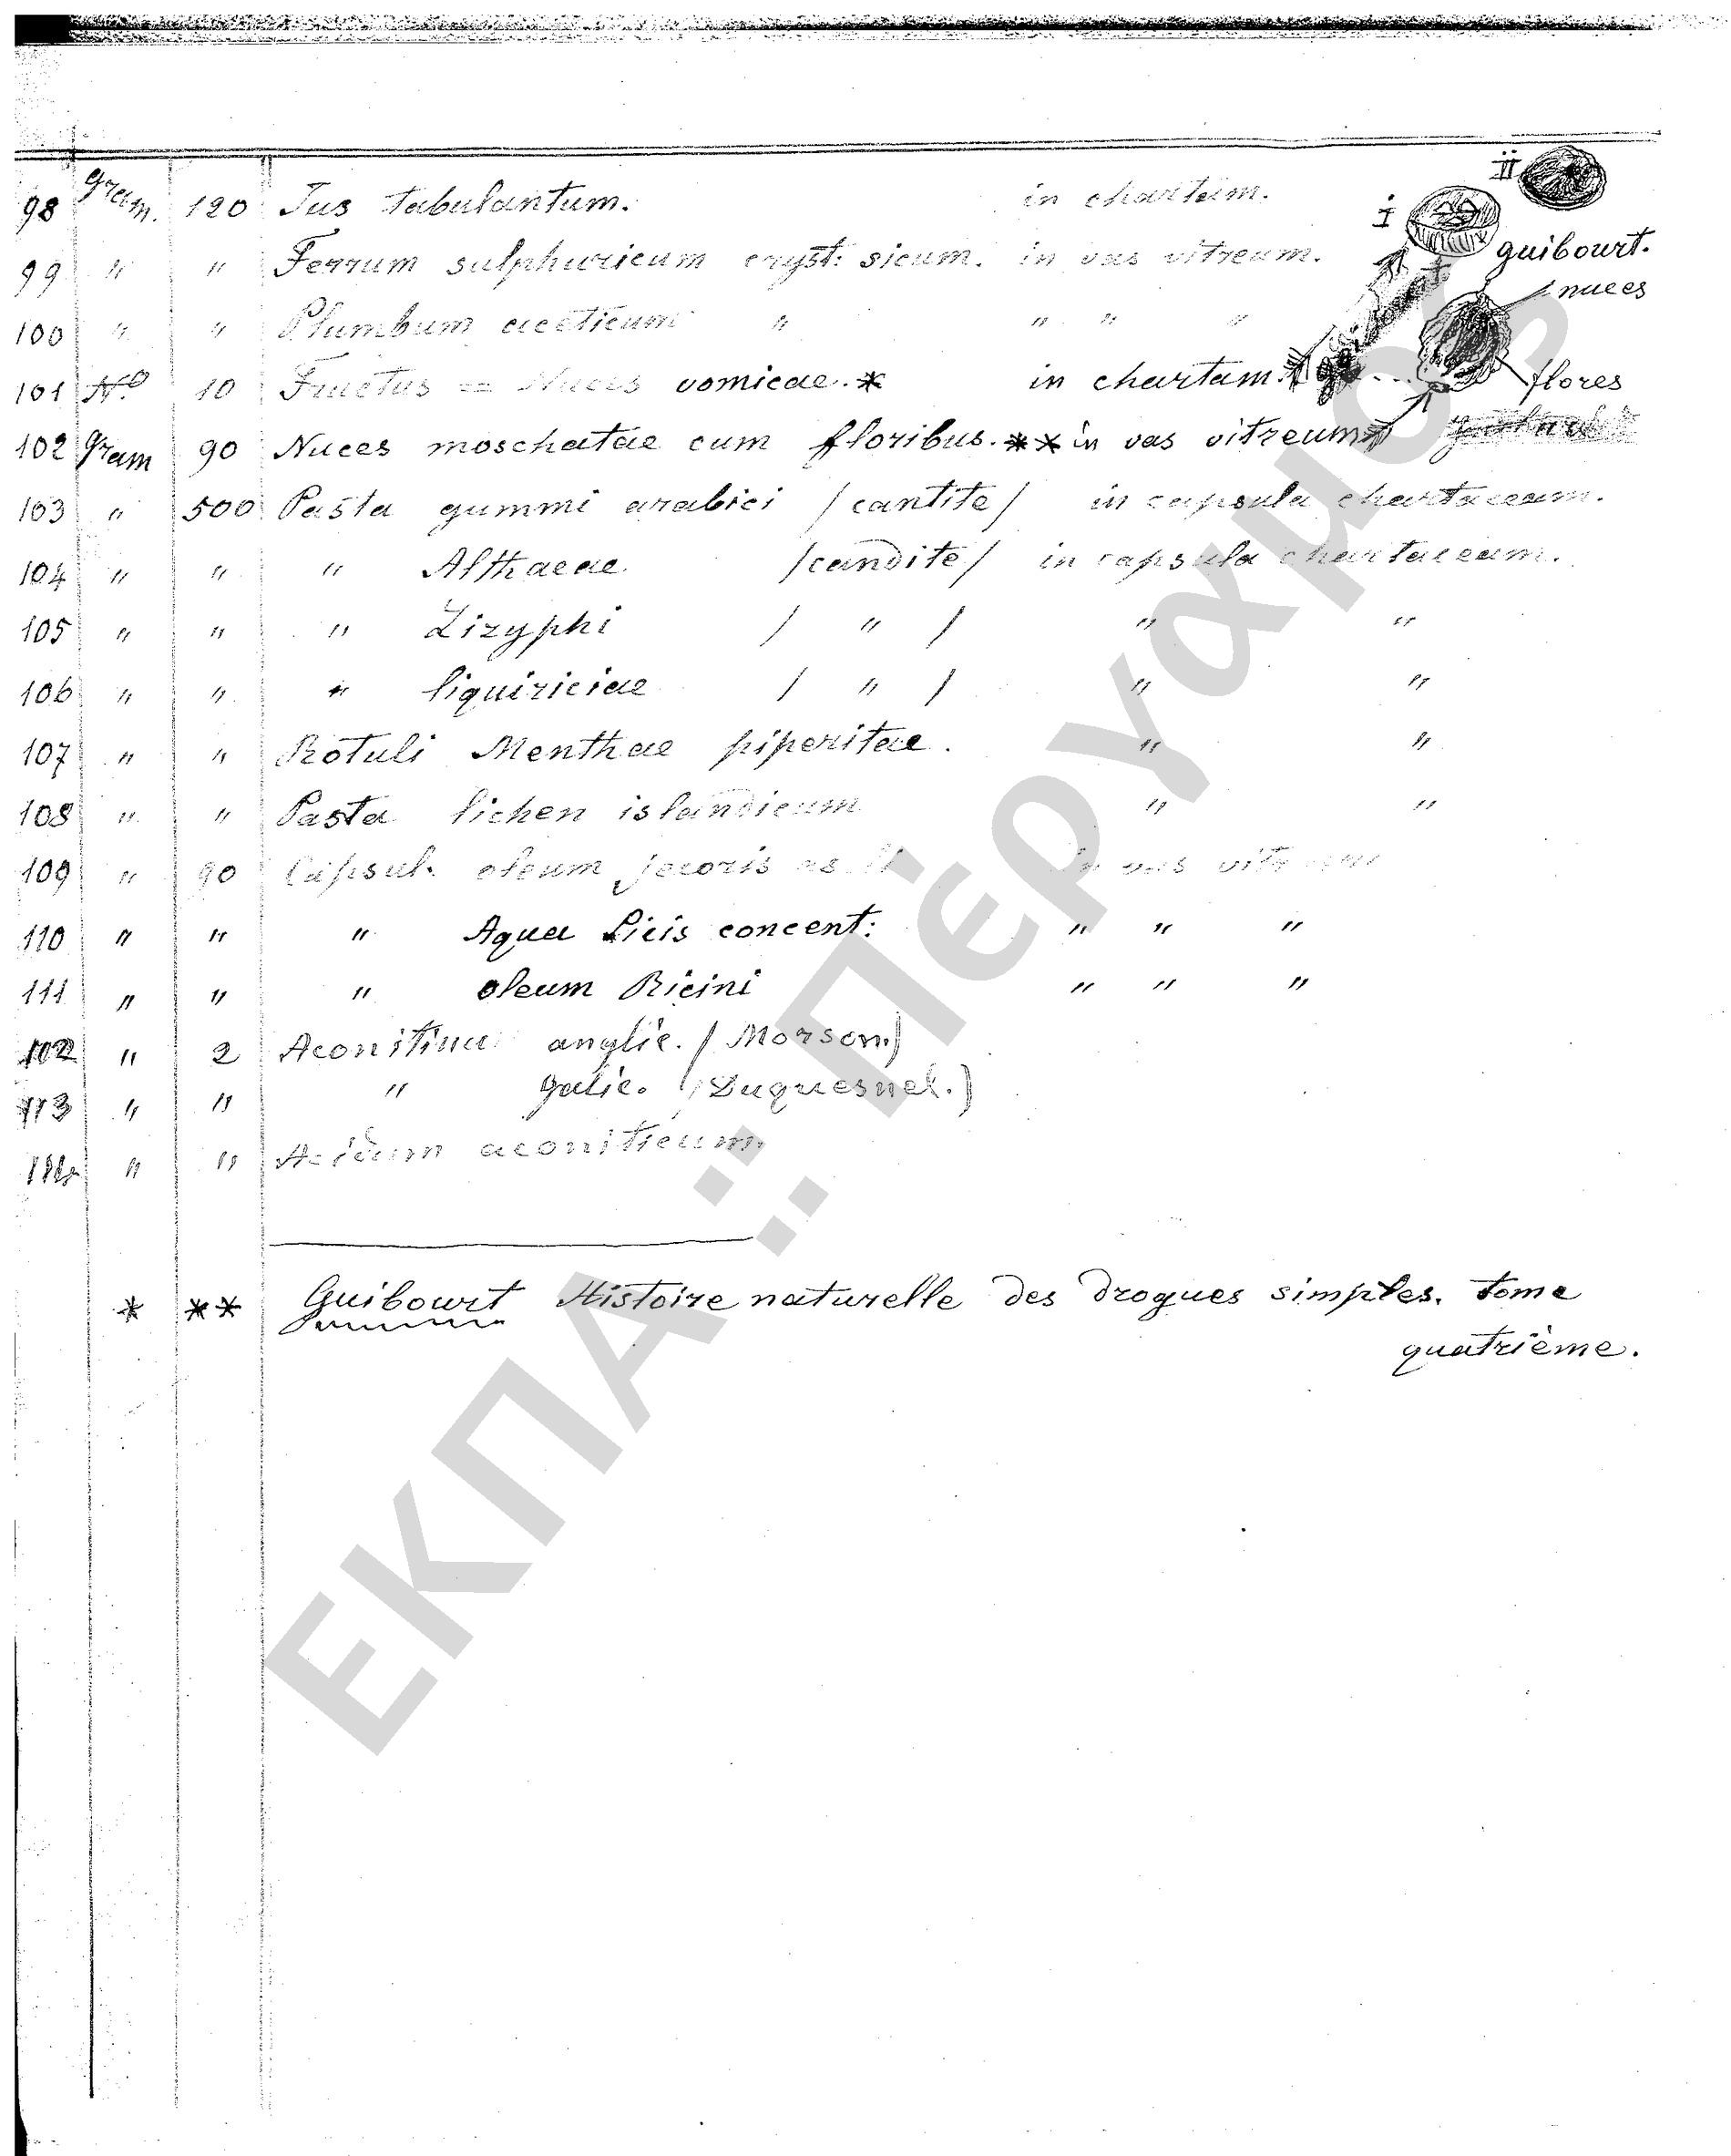 98 gram. 120 Jus tabulantum. in chartam. I II
guibourt.
99 " " Ferrum sulphuricum cryst: sicum. in vas vitreum.
nuces
100 " " Plumbum aceticum " " " "
101 No 10 Fructus = Nuces vomicae. * in chartam.
flores
102 Gram 90 Nuces moschatae cum floribus. ** in vas vitreum
103 " 500 Pasta gummi arabici /cantite/ in capsula chartaceam.
104 " " " Althaeae /candite/ in capsula chartaceam.
105 " " " Zizyphi / " / " "
106 " " " liquiriciae / " / " "
107 " " Rotuli Menthae piperitae. " "
108 " " Pasta lichen islandicum " "
109 " 90 Capsul. oleum jecoris in vas vitreum
110 " " " Aqua Picis concent: " " "
111 " " " oleum Ricini " " "
102 " 2 Aconitina anglic. (Morson.)
113 " " " galic. (Duquesnel.)
114 " " Acidum aconiticum.
* ** Guibourt Histoire naturelle des drogues simples. tome
quatrième.
ΕΚΠΑ :: Πέργαμος